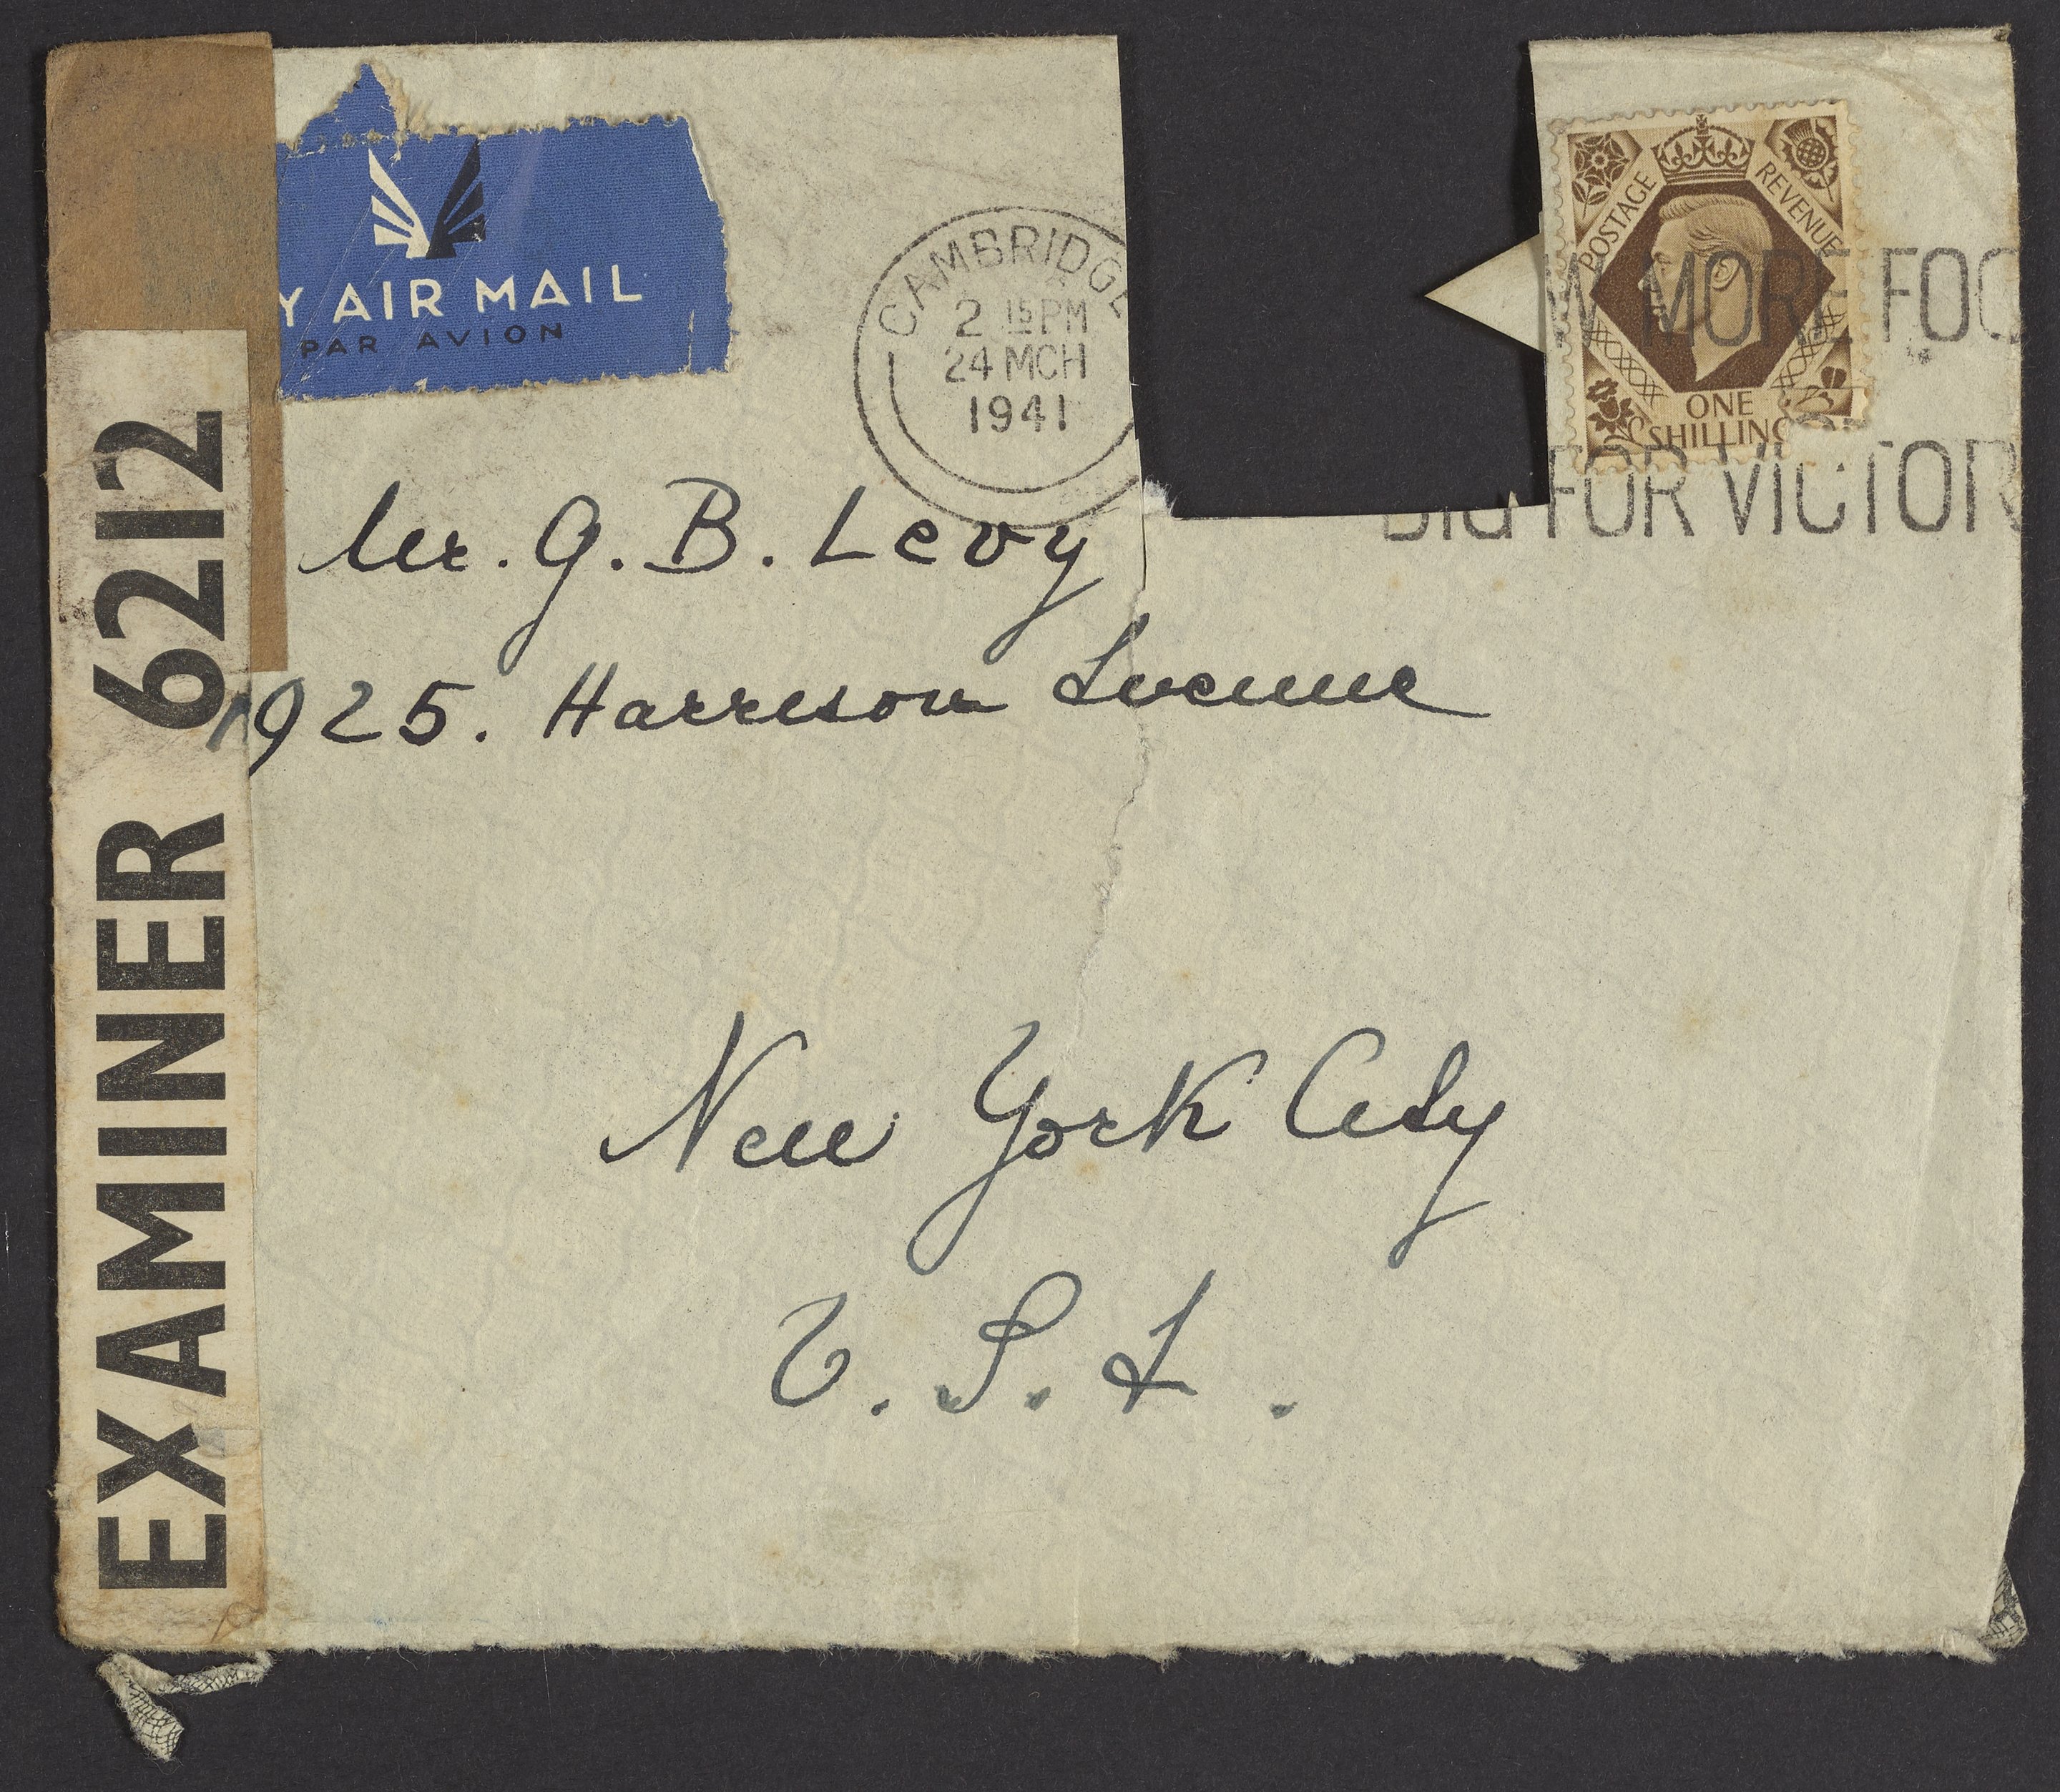 Y AIR MAIL
PAR AVION
CAMBRIDGE
2 15 PM
24 MCH
1941
POSTAGE
REVENUE
ONE
SHILLING
W MORE FOO
DIG FOR VICTOR
Mr. G. B. Levy
1925. Harrison Avenue
New York City
U. S. A.
EXAMINER 6212